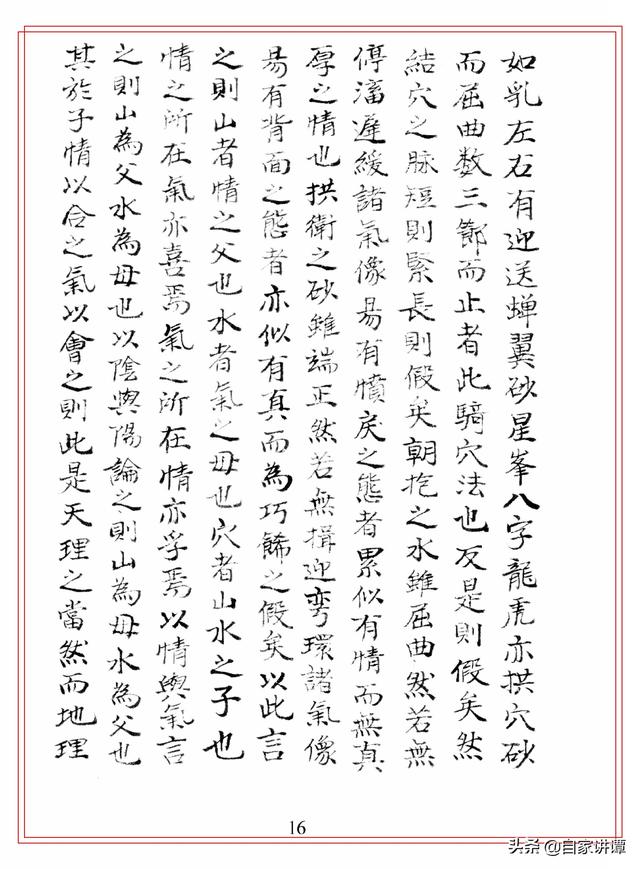 如乳左右有迎送蝉翼砂星峯八字龍虎亦拱穴砂
而屈曲数三節而止者此騎穴法也反是則假矣然
結穴之脉短則緊長則假矣朝抱之水雖屈曲然若無
停滀遅緩諸氣像易有憤戾之態者累似有情而無真
厚之情也拱衛之砂雖端正然若無揖迎弯環諸氣像
易有背面之態者亦似有真而為巧餙之假矣以此言
之則山者情之父也水者氣之母也穴者山水之子也
情之所在氣亦喜焉氣之所在情亦孚焉以情與氣言
之則山為父水為母也以陰與陽論之則山為母水為父也
其於子情以合之氣以會之則此是天理之當然而地理
16
头条 @自家讲谭